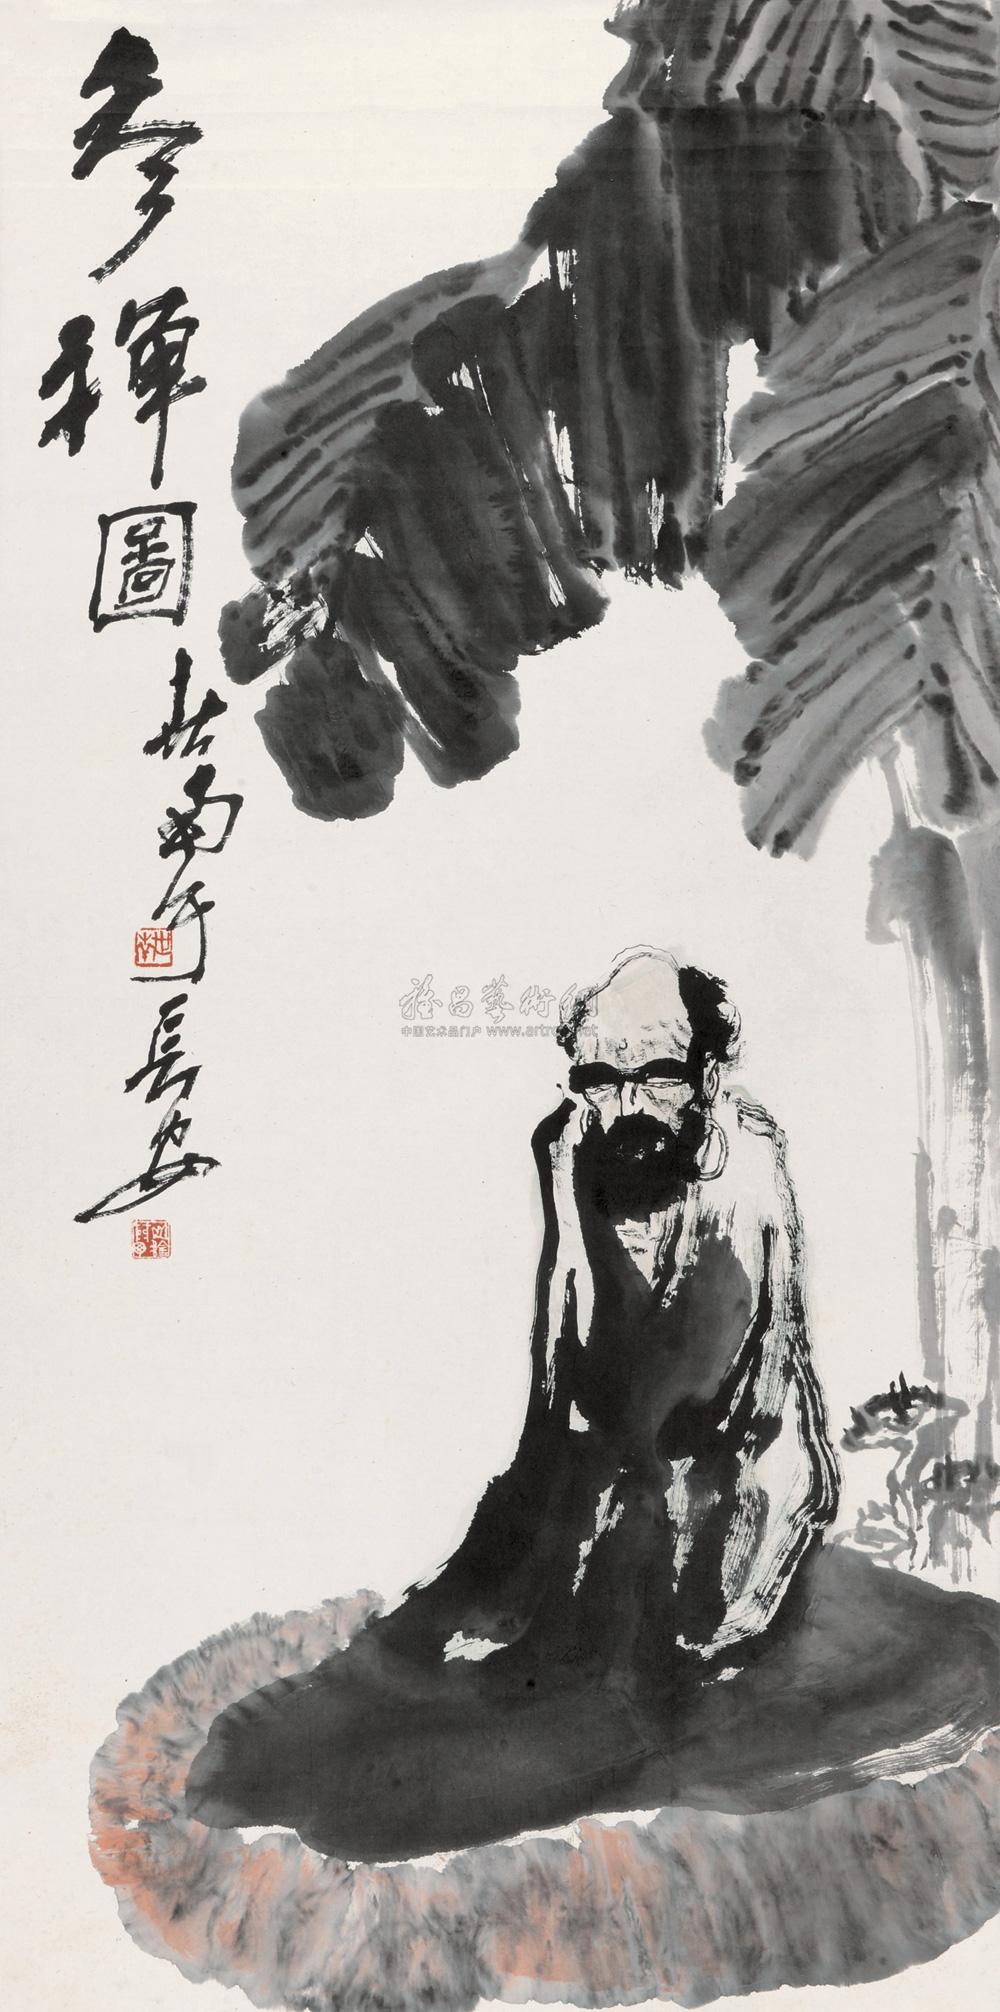 參禪圖
世南于長安
世南
雅昌藝術網
中国艺术品门户 www.artron.net